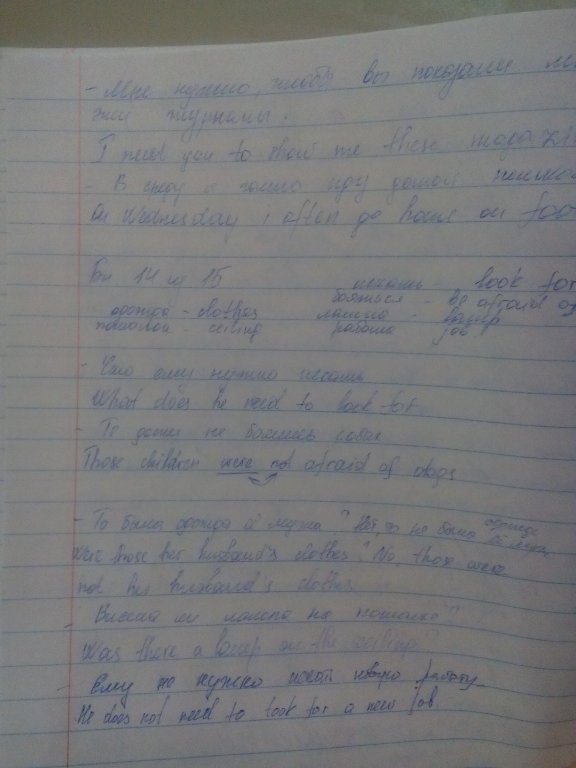 - Мне нужно, чтобы вы показали
эти журналы.
I need you to show me these
- В среду я часто иду домой
On Wednesday I often go home on foo
14 из 15 искать - look for
бояться - be afraid of
одежда - clothes лампа - lamp
потолок - ceiling работа job
- Что ему нужно искать
What does he need to look for
- Те дети не боялись собак
Those children were not afraid of dogs
- То была одежда её мужа? Нет, то не была одежда
её мужа
Were those her husband's clothes? No, those were
not her husband's clothes
- Висела ли лампа на потолке?
Was there a lamp on the ceiling?
- Ему не нужно искать новую работу
He does not need to look for a new job